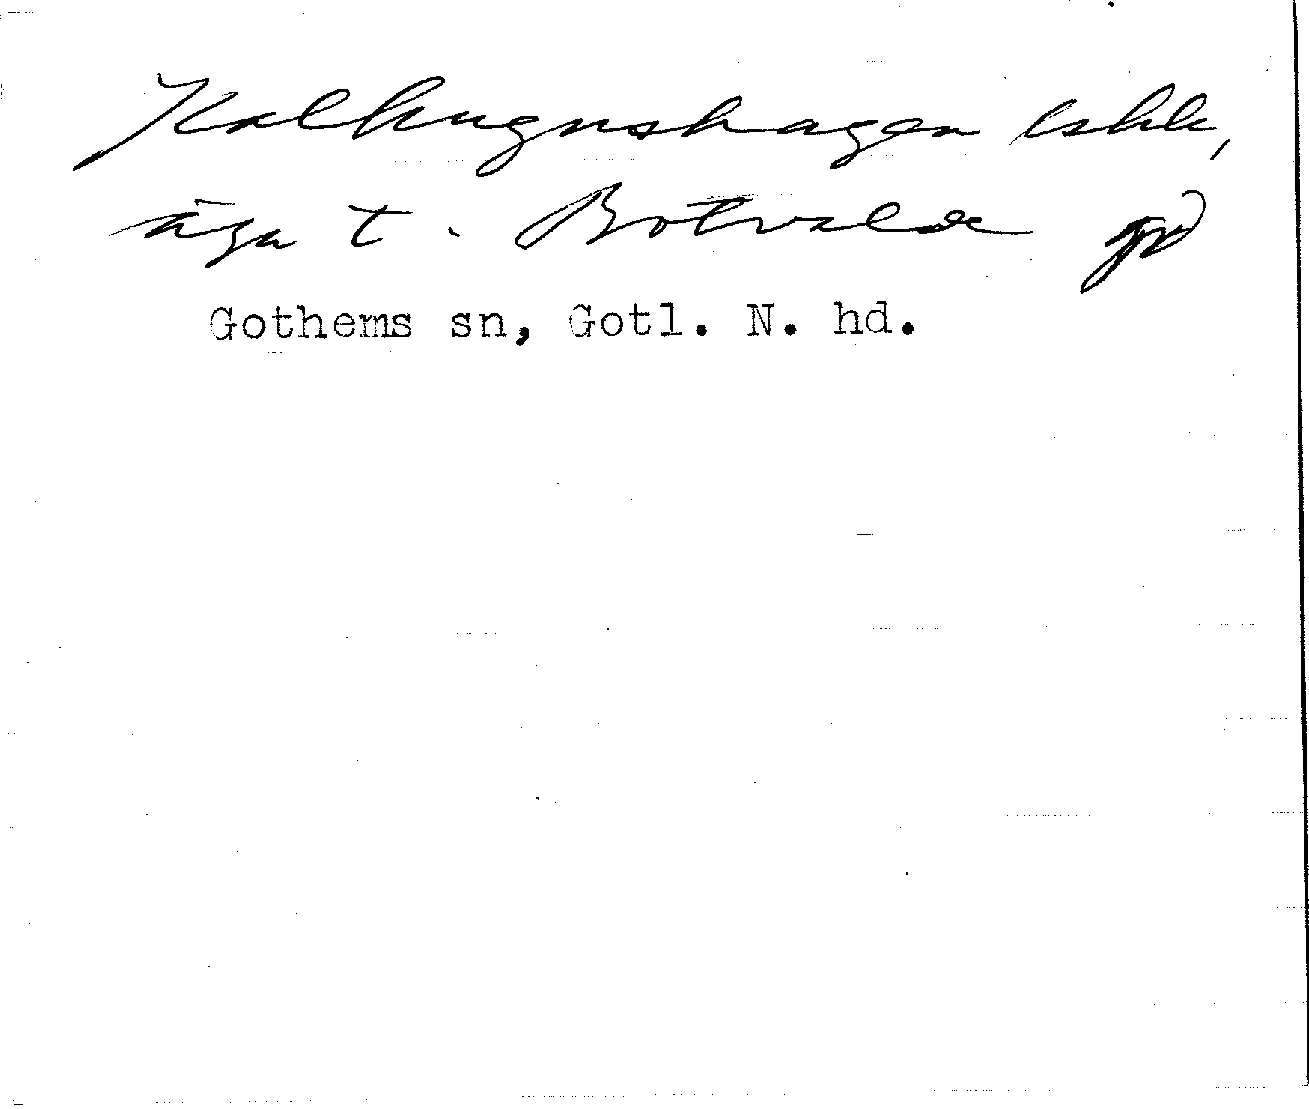 Kalkugnshagen lshk,
äga t. Botvalde gd
Gothems sn, Gotl. N. hd.